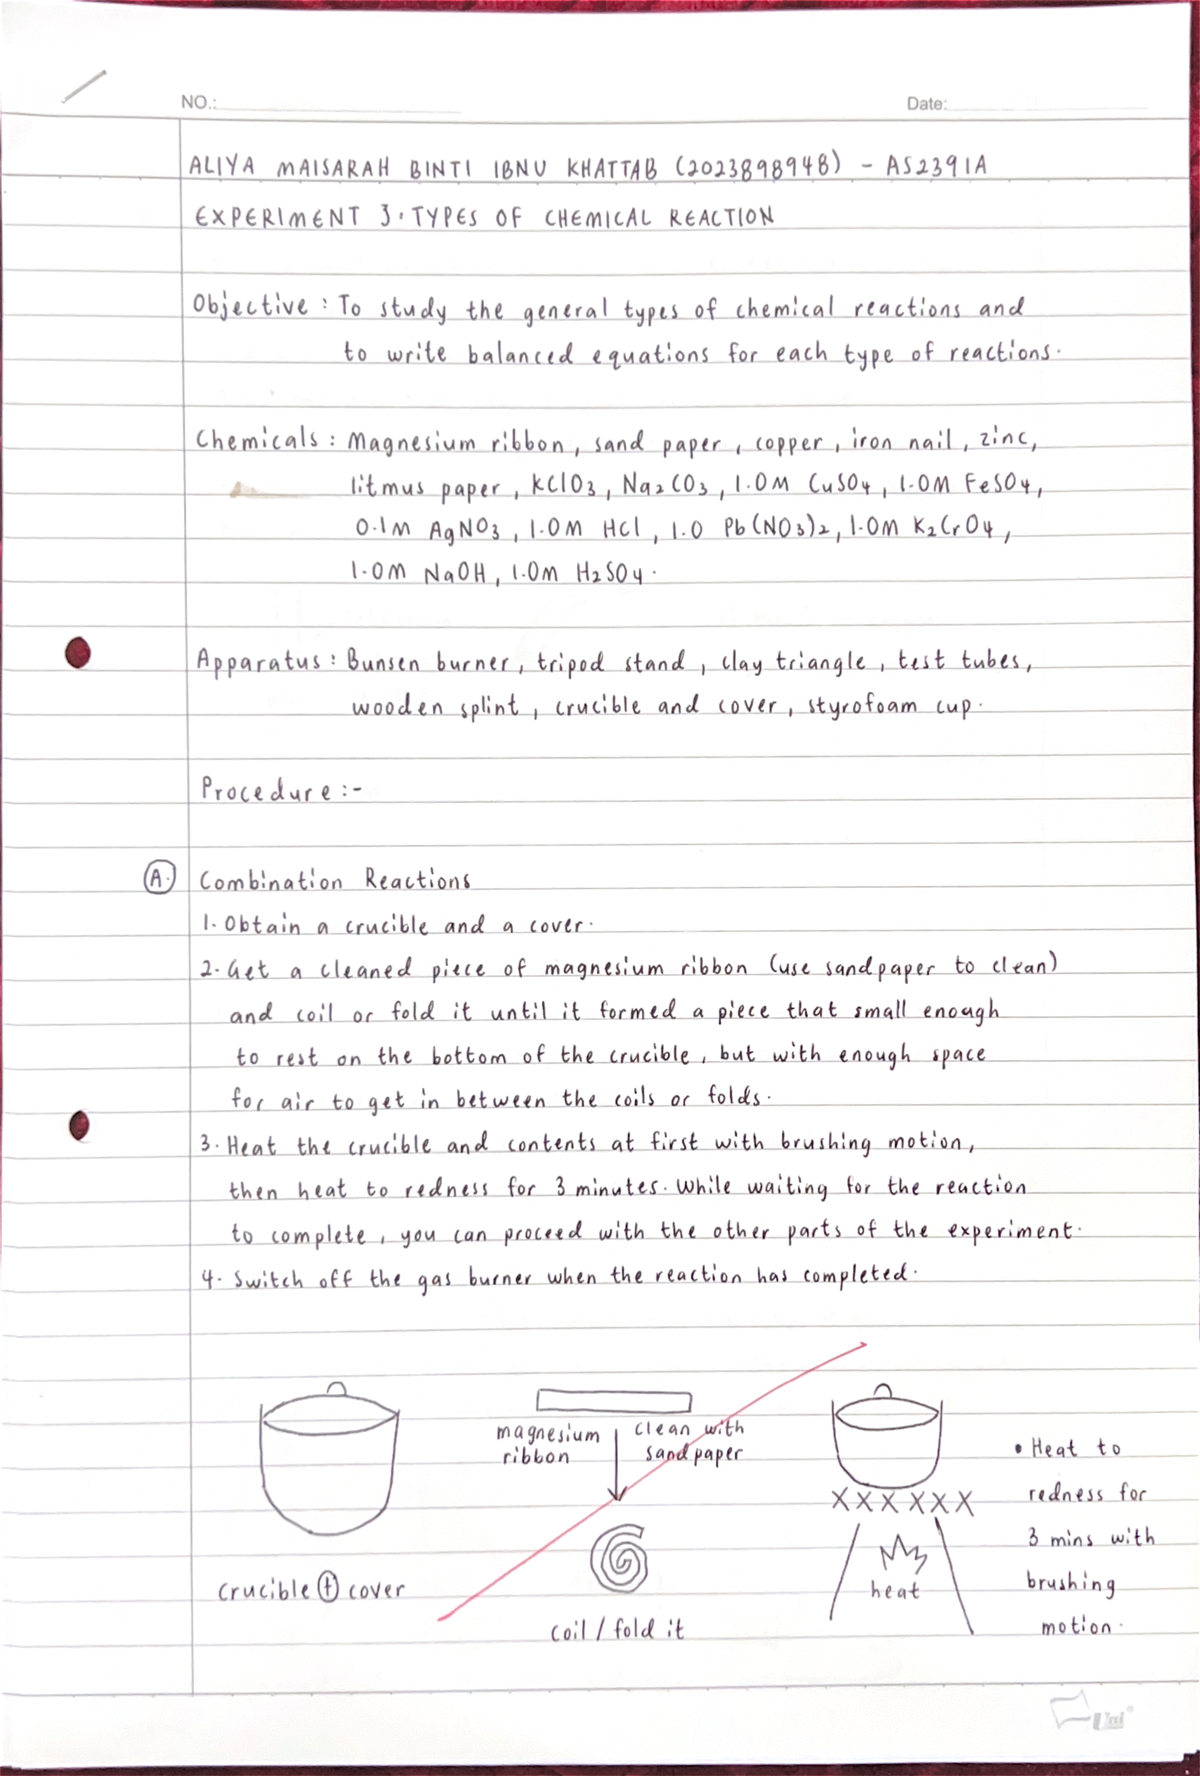 NO.:
Date:
ALIYA MAISARAH BINTI IBNU KHATTAB (2023898948) - AS2391A
EXPERIMENT 3: TYPES OF CHEMICAL REACTION
Objective : To study the general types of chemical reactions and
to write balanced equations for each type of reactions.
Chemicals : Magnesium ribbon, sand paper, copper, iron nail, zinc,
litmus paper, KClO3, Na2CO3, 1.0M CuSO4, 1.0M FeSO4,
0.1M AgNO3, 1.0M HCl, 1.0 Pb(NO3)2, 1.0M K2CrO4,
1.0M NaOH, 1.0M H2SO4.
Apparatus : Bunsen burner, tripod stand, clay triangle, test tubes,
wooden splint, crucible and cover, styrofoam cup.
Procedure :-
A. Combination Reactions
1. Obtain a crucible and a cover.
2. Get a cleaned piece of magnesium ribbon (use sandpaper to clean)
and coil or fold it until it formed a piece that small enough
to rest on the bottom of the crucible, but with enough space
for air to get in between the coils or folds.
3. Heat the crucible and contents at first with brushing motion,
then heat to redness for 3 minutes. While waiting for the reaction
to complete, you can proceed with the other parts of the experiment.
4. Switch off the gas burner when the reaction has completed.
magnesium ribbon
clean with sandpaper
crucible + cover
coil / fold it
XXXXXX
heat
• Heat to
redness for
3 mins with
brushing
motion.
Uni